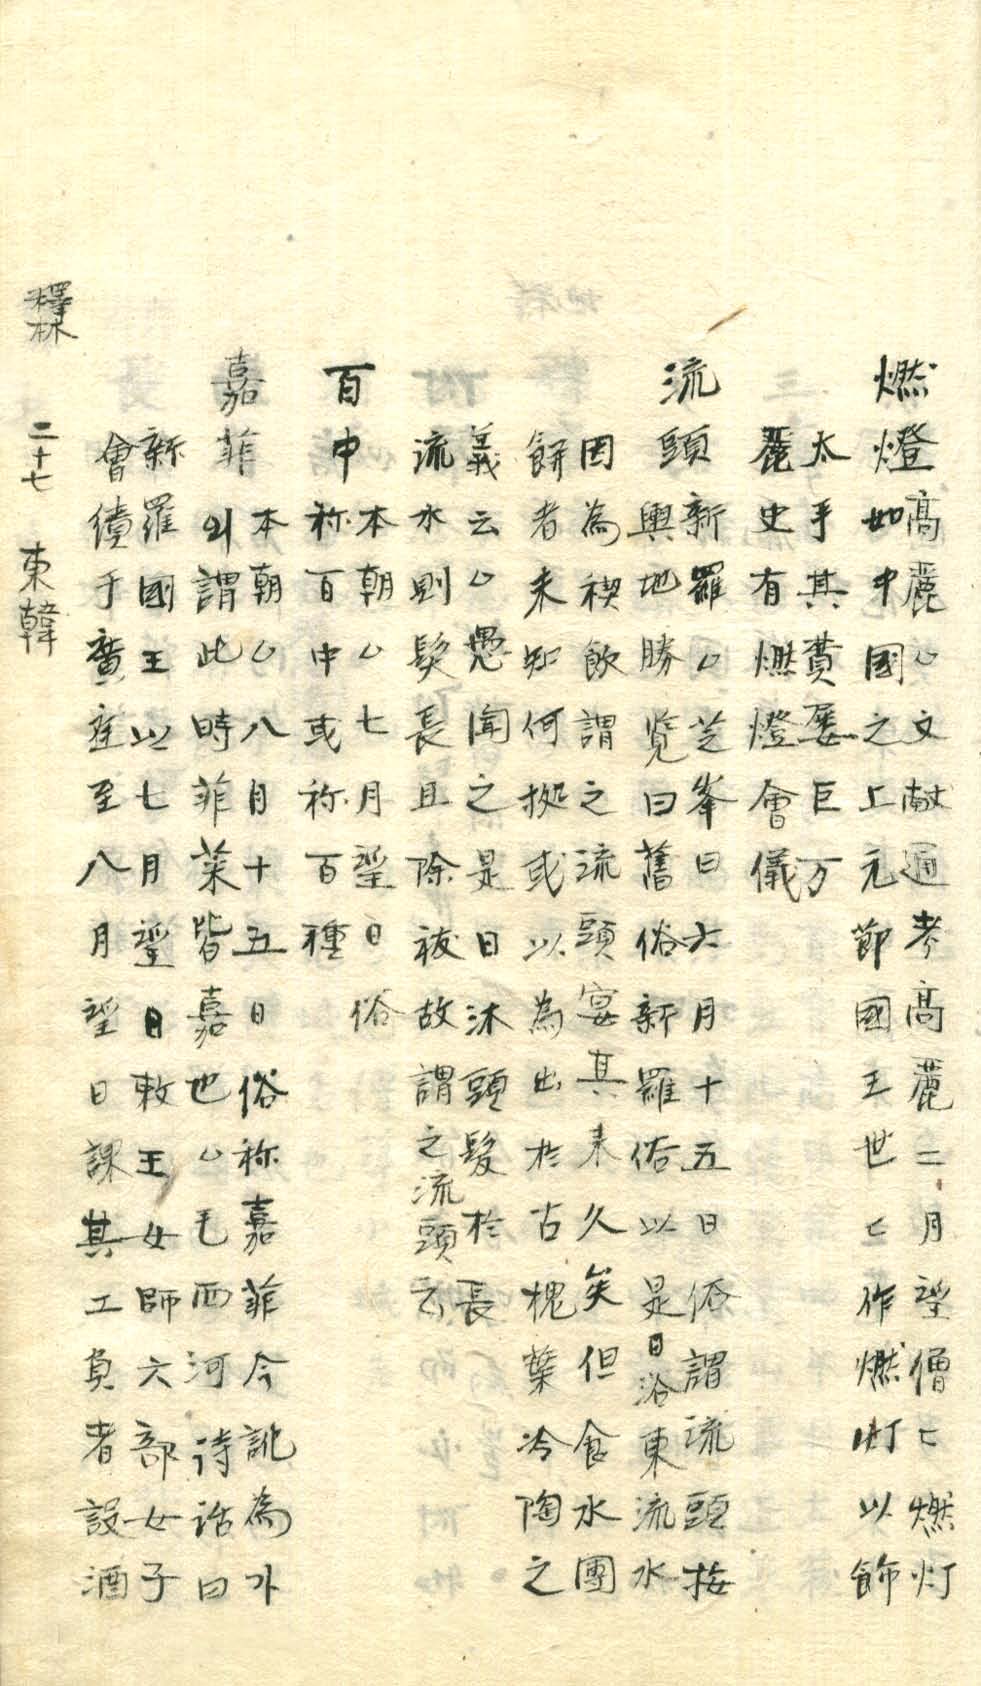 燃燈
高麗○文献通考高麗二月望僧亡燃灯
如中國之上元節國王世亡作燃灯以飾
太手其費屡巨万
麗史有燃燈會儀
流頭
新羅○芝峯曰六月十五日俗謂流頭按
輿地勝覧曰舊俗新羅俗以是日浴東流水
因為禊飲謂之流頭宴其来久矣但食水團
餅者未知何㨿或以為出於古槐葉冷陶之
義云○愚聞之是日沐頭髮於長
流水則髮長且除祓故謂之流頭云
百中
本朝○七月望日俗
称百中或称百種
嘉菲
本朝○八月十五日俗称嘉菲今訛為가
외謂此時菲菜皆嘉也○毛西河詩話曰
新羅國王以七月望日敕王女師六部女子
會績于廣庭至八月望日課其工負者設酒
釋林 二十七 東韓